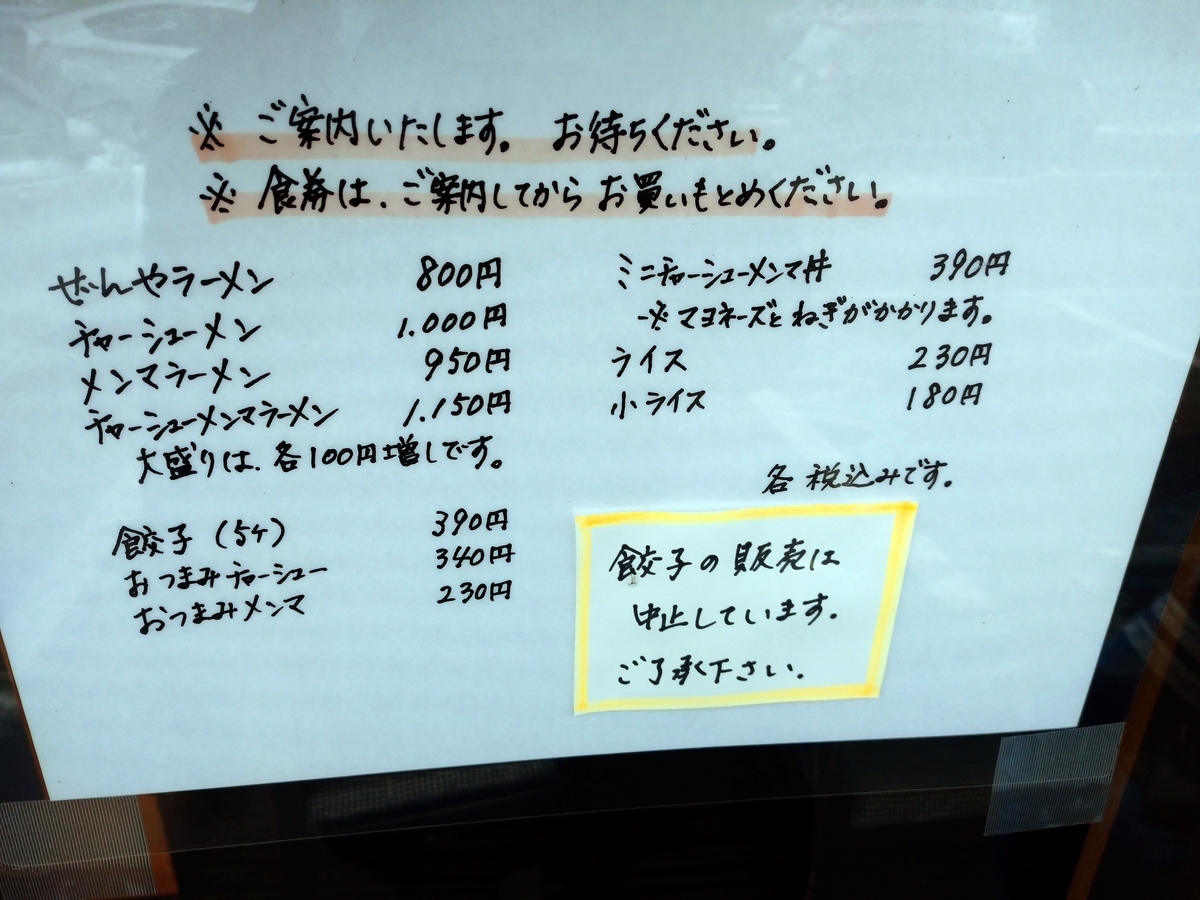 ※ ご案内いたします。 お待ちください。
※ 食券は、ご案内してからお買いもとめください。
ぜんやラーメン 800円
チャーシューメン 1.000円
メンマラーメン 950円
チャーシューメンマラーメン 1.150円
大盛りは、各100円増しです。
餃子 (5ケ) 390円
おつまみチャーシュー 340円
おつまみメンマ 230円
ミニチャーシューメンマ丼 390円
※ マヨネーズとねぎがかかります。
ライス 230円
小ライス 180円
各 税込みです。
餃子の販売は
中止しています。
ご了承下さい。